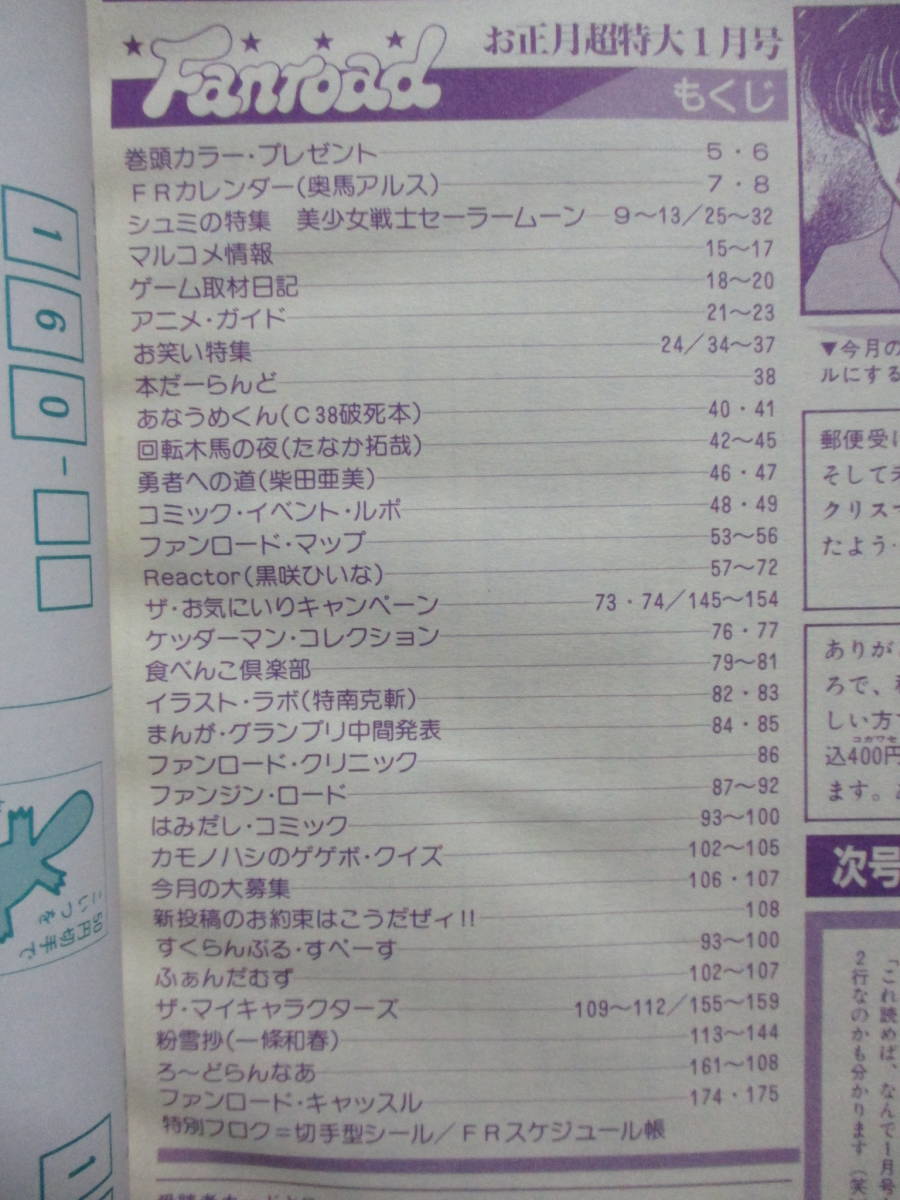 Fanroad
お正月超特大1月号
もくじ
巻頭カラー・プレゼント 5・6
FRカレンダー(奥馬アルス) 7・8
シュミの特集 美少女戦士セーラームーン 9〜13/25〜32
マルコメ情報 15〜17
ゲーム取材日記 18〜20
アニメ・ガイド 21〜23
お笑い特集 24/34〜37
本だーらんど 38
あなうめくん(C38破死本) 40・41
回転木馬の夜(たなか拓哉) 42〜45
勇者への道(柴田亜美) 46・47
コミック・イベント・ルポ 48・49
ファンロード・マップ 53〜56
Reactor(黒咲ひいな) 57〜72
ザ・お気にいりキャンペーン 73・74/145〜154
ケッダーマン・コレクション 76・77
食べんこ倶楽部 79〜81
イラスト・ラボ(特南克斬) 82・83
まんが・グランプリ中間発表 84・85
ファンロード・クリニック 86
ファンジン・ロード 87〜92
はみだし・コミック 93〜100
カモノハシのゲゲボ・クイズ 102〜105
今月の大募集 106・107
新投稿のお約束はこうだぜィ!! 108
すくらんぶる・すぺーす 93〜100
ふぁんだむず 102〜107
ザ・マイキャラクターズ 109〜112/155〜159
粉雪抄(一條和春) 113〜144
ろ〜どらんなあ 161〜108
ファンロード・キャッスル 174・175
特別フロク=切手型シール/FRスケジュール帳
160-
50円切手で
こいつを
▼今月の
ルにする
郵便受に
そして天
クリスマ
たよう
ありが
ろで、
しい方
込400円
ます。
次号
「これ読めば、なんで1月号
2行なのかも分かります(笑